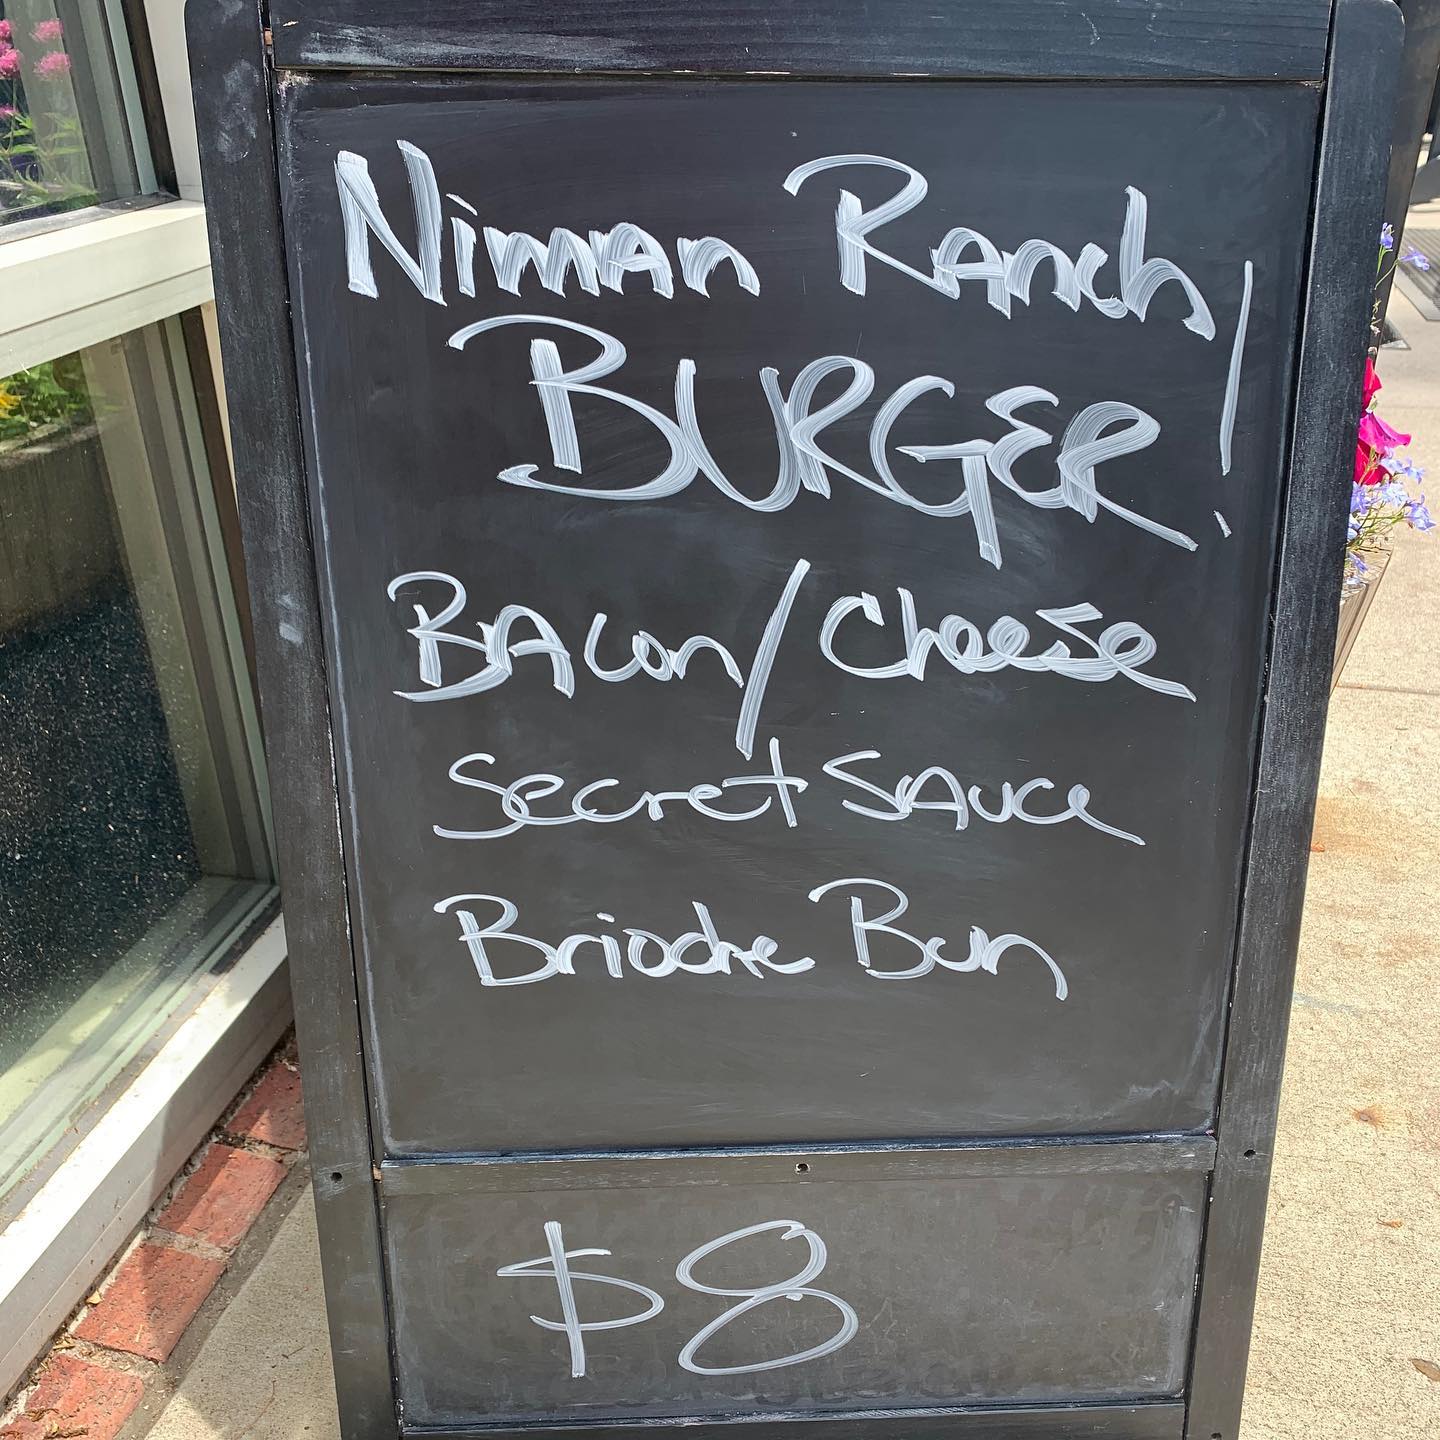 Niman Ranch
BURGER!
Bacon/Cheese
Secret Sauce
Brioche Bun
$8